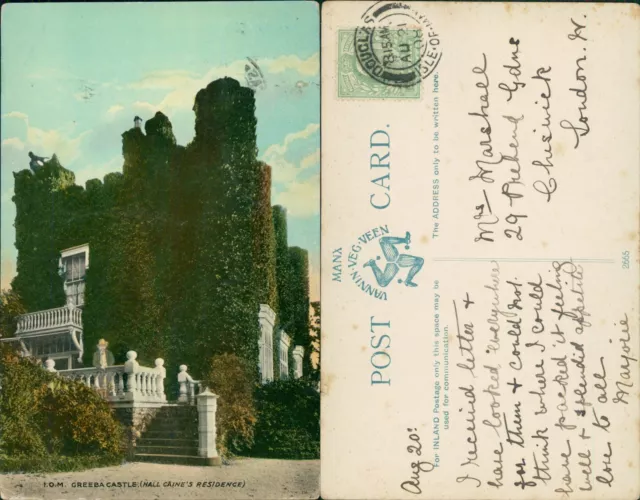 I.O.M. GREEBA CASTLE. (HALL CAINE'S RESIDENCE)
DOUGLAS
8 15 AM
AU 21
08
ISLE-OF-MAN
POST CARD.
MANX
VANNIN·VEG·VEEN
For INLAND Postage only this space may be
used for communication.
The ADDRESS only to be written here.
2555
Aug 20th
I received letter &
have looked everywhere
for them & could not
think where I could
have packed it feeling
well & splendid appetite
love to all
Marjorie
Mrs Marshall
29 Prebend Gdns
Chiswick
London. W.